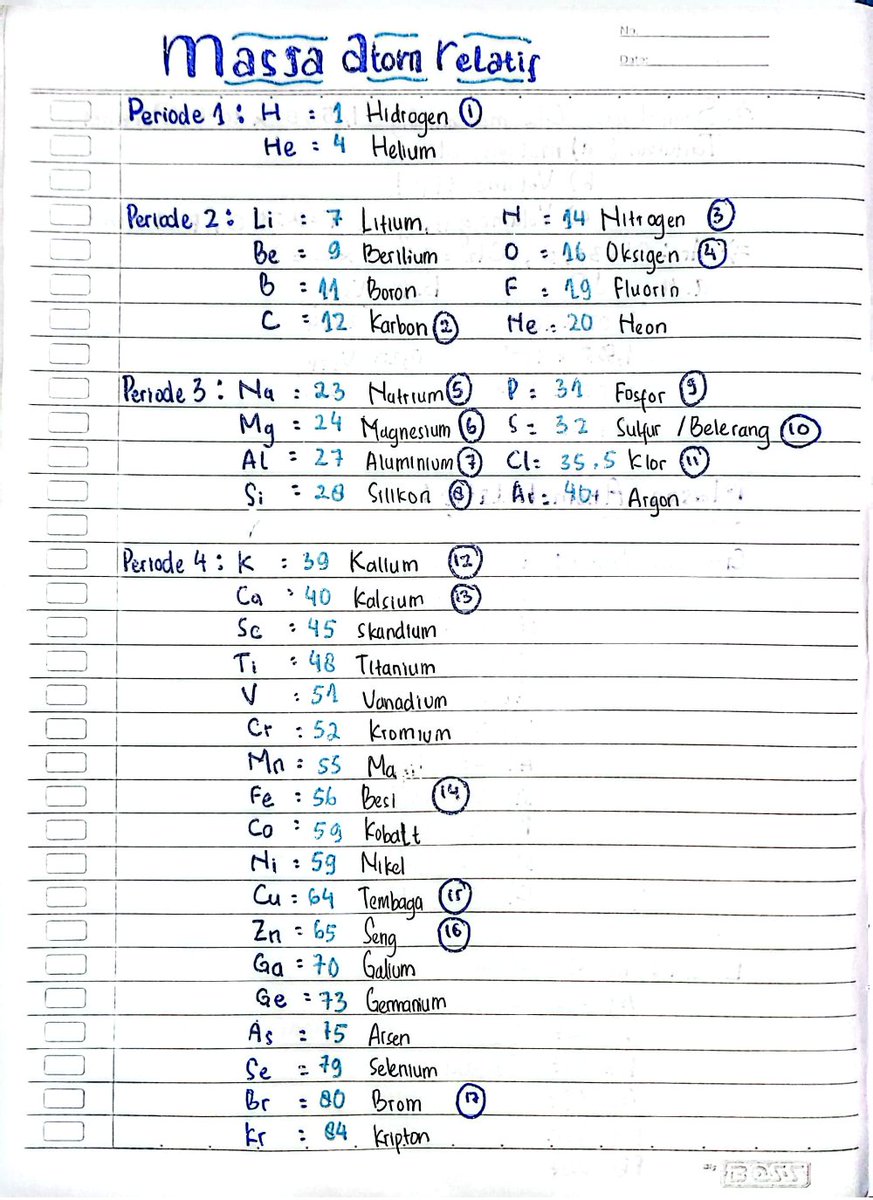 Massa atom relatif
No.
Date:
Periode 1 : H : 1 Hidrogen 1
He = 4 Helium
Periode 2 : Li : 7 Litium. N = 14 Nitrogen 3
Be = 9 Berilium O = 16 Oksigen 4
B = 11 Boron F = 19 Fluorin
C = 12 Karbon 2 Ne = 20 Neon
Periode 3 : Na = 23 Natrium 5 P = 31 Fosfor 9
Mg = 24 Magnesium 6 S = 32 Sulfur / Belerang 10
Al = 27 Aluminium 7 Cl = 35,5 Klor 11
Si = 28 Silikon 8 Ar = 40 Argon
Periode 4 : K : 39 Kalium 12
Ca : 40 Kalsium 13
Sc : 45 Skandium
Ti : 48 Titanium
V : 51 Vanadium
Cr : 52 Kromium
Mn = 55 Ma
Fe : 56 Besi 14
Co : 59 Kobalt
Ni : 59 Nikel
Cu : 64 Tembaga 15
Zn = 65 Seng 16
Ga = 70 Galium
Ge = 73 Germanium
As = 75 Arsen
Se = 79 Selenium
Br = 80 Brom 17
Kr = 84 Kripton